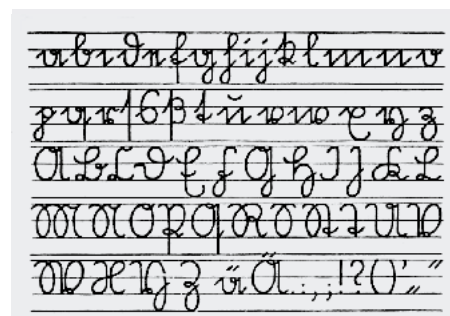 a b c d e f g h i j k l m n o
p q r ſ s ß t u v w x y z
A B C D E F G H I J K L
M N O P Q R S St T U V
W X Y Z ü Ä . : , ; ! ? ( ) ' „ "